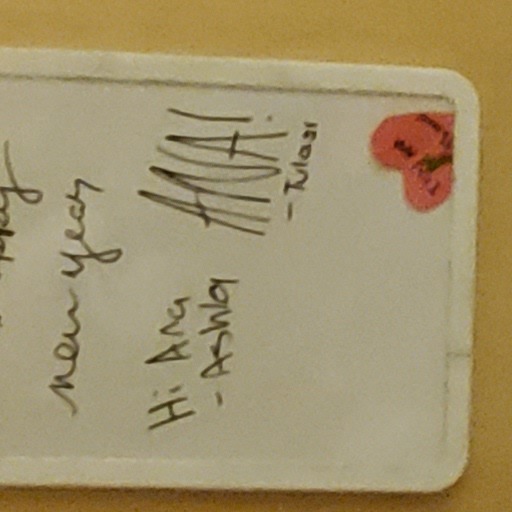 new year
Hi Ana
- Ashla
ANA!
- Tulasi